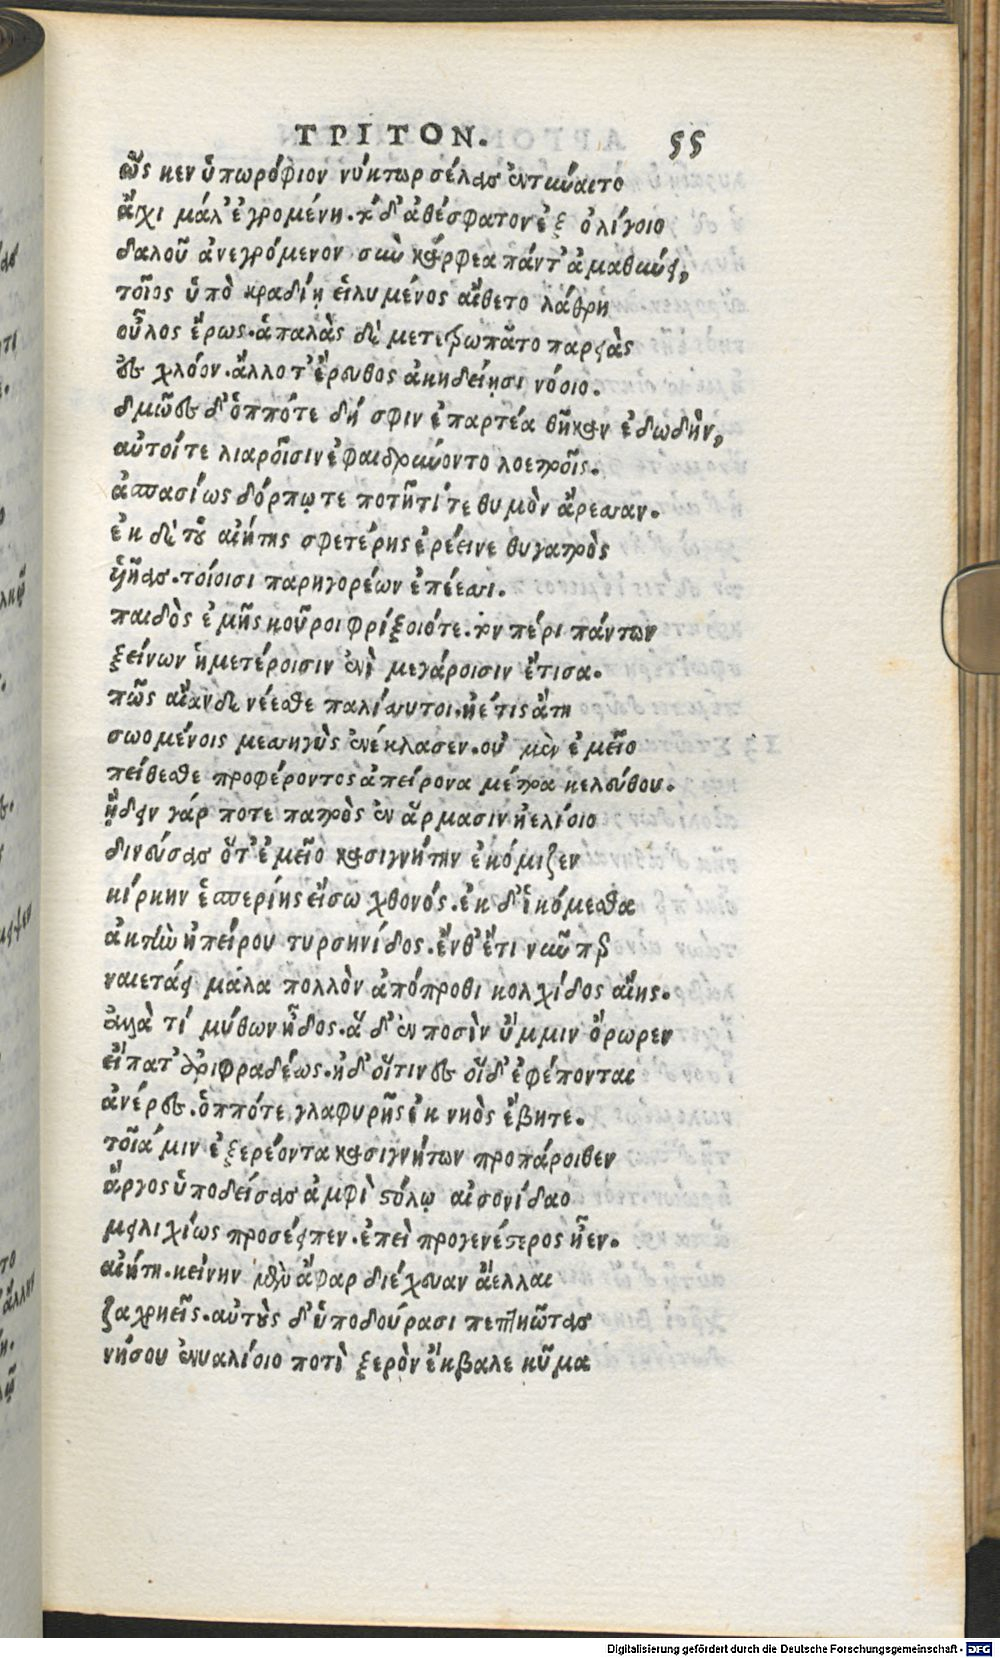 ΤΡΙΤΟΝ. 55
ὥς κεν ὑπωρόφιον νύκτωρ σέλας ἐντύναιτο
ἄγχι μάλ' ἐγρομένη. τὸ δ' ἀθέσφατον ἐξ ὀλίγοιο
δαλοῦ ἀνεγρόμενον σὺν κάρφεα πάντ' ἀμαθύνει,
τοῖος ὑπὸ κραδίῃ εἰλυμένος αἴθετο λάθρη
οὖλος ἔρως. ἁπαλὰς δὲ μετετρωπᾶτο παρειὰς
ἐς χλόον. ἄλλοτ' ἔρευθος ἀκηδείῃσι νόοιο.
δμῶες δ' ὁππότε δή σφιν ἐπαρτέα θῆκαν ἐδωδὴν,
αὐτοί τε λιαροῖσιν ἐφαιδρύνοντο λοετροῖς.
ἀσπασίως δόρπῳ τε ποτῆτί τε θυμὸν ἄρεσσαν.
ἐκ δὲ τοῦ αἰήτης σφετέρης ἐρέεινε θυγατρὸς
υἷῆας. τοίοισι παρηγορέων ἐπέεσσι.
παιδὸς ἐμῆς κοῦροι φρίξοιό τε. τὸν πέρι πάντων
ξείνων ἡμετέροισιν ἐνὶ μεγάροισιν ἔτισα.
πῶς αἶαν δὲ νέεσθε παλίσσυτοι. ἠέ τις ἄτη
σωομένοις μεσσηγὺς ἐνέκλασεν. οὐ μὲν ἐμεῖο
πείθεσθε προφέροντος ἀπείρονα μέτρα κελεύθου.
ᾔδειν γάρ ποτε πατρὸς ἐν ἅρμασιν ἠελίοιο
δινεύσας ὅτ' ἐμεῖο κασιγνήτην ἐκόμιζεν
κίρκην ἑσπερίης εἴσω χθονός. ἐκ δ' ἱκόμεσθα
ἀκτὴν ἠπείρου τυρσηνίδος. ἔνθ' ἔτι νῦν περ
ναιετάει μάλα πολλὸν ἀπόπροθι κολχίδος αἴης.
ἀλλὰ τί μύθων ἦδος. ἃ δ' ἐν ποσὶν ὔμμιν ὄρωρεν
εἴπατ' ἀριφραδέως. ἠδ' οἵτινες οἵδ' ἐφέπονται
ἀνέρες. ὁππότε γλαφυρῆς ἐκ νηὸς ἔβητε.
τοῖά μιν ἐξερέοντα κασιγνήτων προπάροιθεν
ἄργος ὑποδείσας ἀμφὶ στόλῳ αἰσονίδαο
μειλιχίως προσέειπεν. ἐπεὶ προγενέστερος ἦεν.
αἰήτη. κείνην μὲν ἄφαρ διέχευαν ἄελλαι
ζαχρηεῖς. αὐτοὺς δ' ὑπὸ δούρασι πεπτηῶτας
νήσου ἐνυαλίοιο ποτὶ ξερὸν ἔκβαλε κῦμα
Digitalisierung gefördert durch die Deutsche Forschungsgemeinschaft - DFG